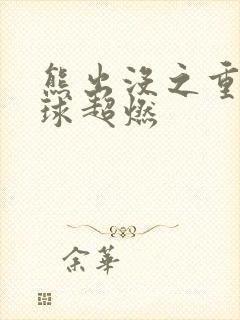 熊出没之重
球超燃
余華